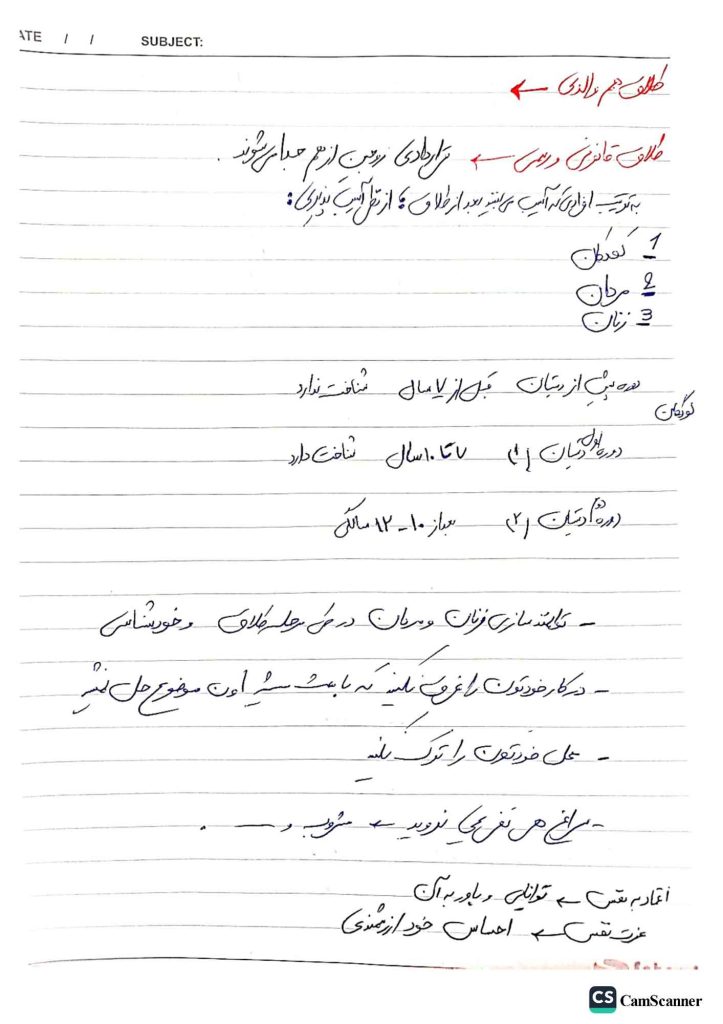 DATE / / SUBJECT:
طلاق هم والدی ←
طلاق قانونی و رسمی ← قراردادی زوجین از هم جدا می‌شوند.
به ترتیب افرادی که آسیب می‌بینند بعد از طلاق؛ از نظر آسیب پذیری:
1 کودکان
2 مردان
3 زنان
دوره پیش از دبستان قبل از ۷ سال شناخت ندارد
کودکان
دوره اول دبستان (۱) ۷ تا ۱۰ سال شناخت دارد
دوره دوم دبستان (۲) بعد از ۱۰ - ۱۲ سالگی
- توانمندسازی زنان و مردان در طی مرحله طلاق و خودشناسی
- در کار خودتون را غرق نکنید که باعث میشه اون موضوع حل نشه
- محل خودتون را ترک نکنید
- سراغ هر تفریحی نروید ← مشروب و ... .
اعتماد به نفس ← توانایی و باور به آن
عزت نفس ← احساس خود ارزشمندی
CS CamScanner